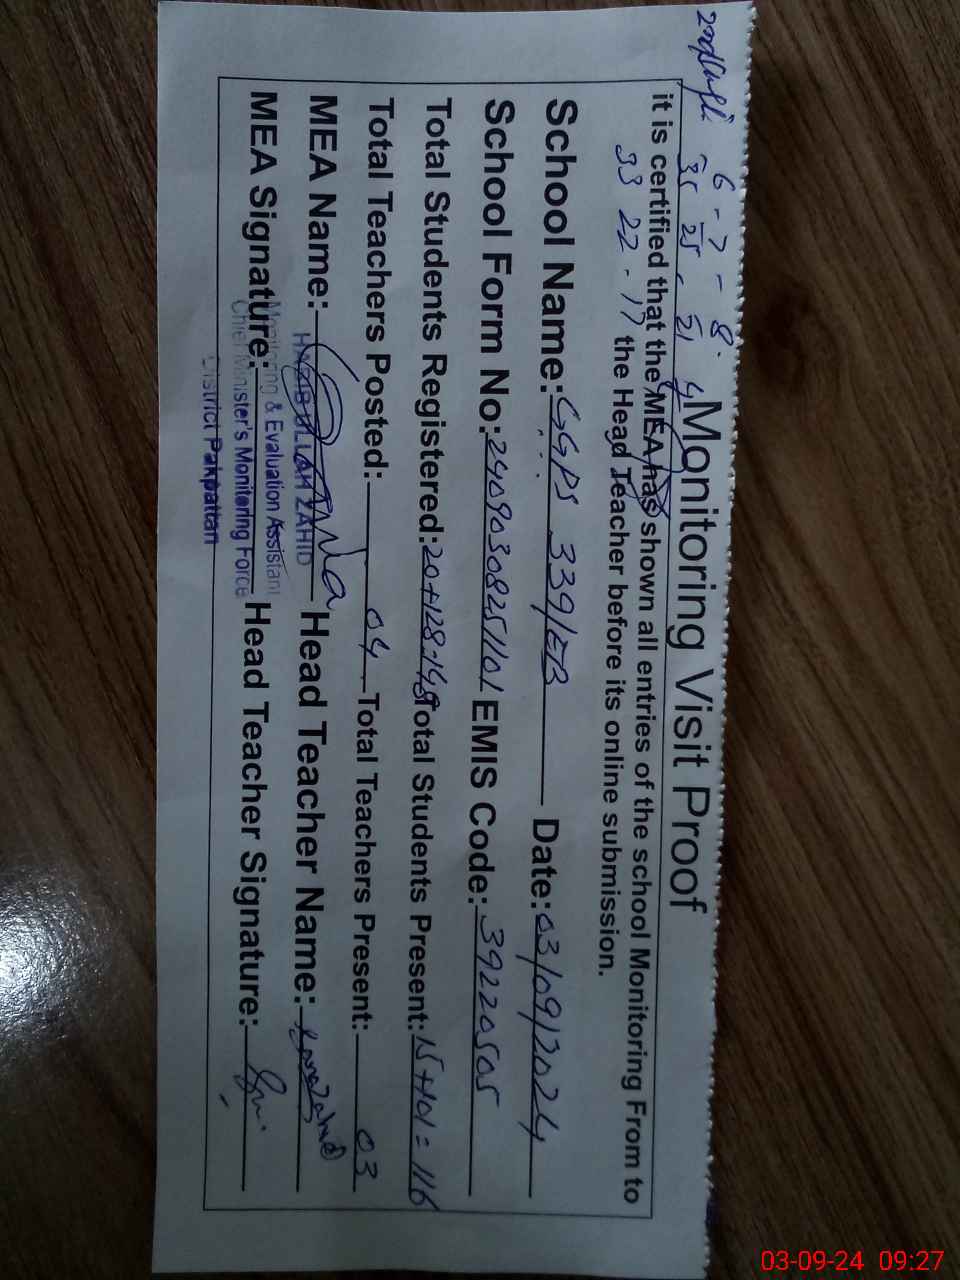 6 - 7 - 8.
35 25 - 21
33 22 - 17
Monitoring Visit Proof
it is certified that the MEA has shown all entries of the school Monitoring From to
the Head Teacher before its online submission.
School Name: GGPS 339/EB Date: 03/09/2024
School Form No: 24090308251101 EMIS Code: 39220505
Total Students Registered: 20+128=148 Total Students Present: 15+101=116
Total Teachers Posted: 04 Total Teachers Present: 03
MEA Name: Head Teacher Name:
HABIB ULLAH ZAHID
MEA Signature: Head Teacher Signature:
Monitoring & Evaluation Assistant
Chief Minister's Monitoring Force
District Pakpattan
03-09-24 09:27